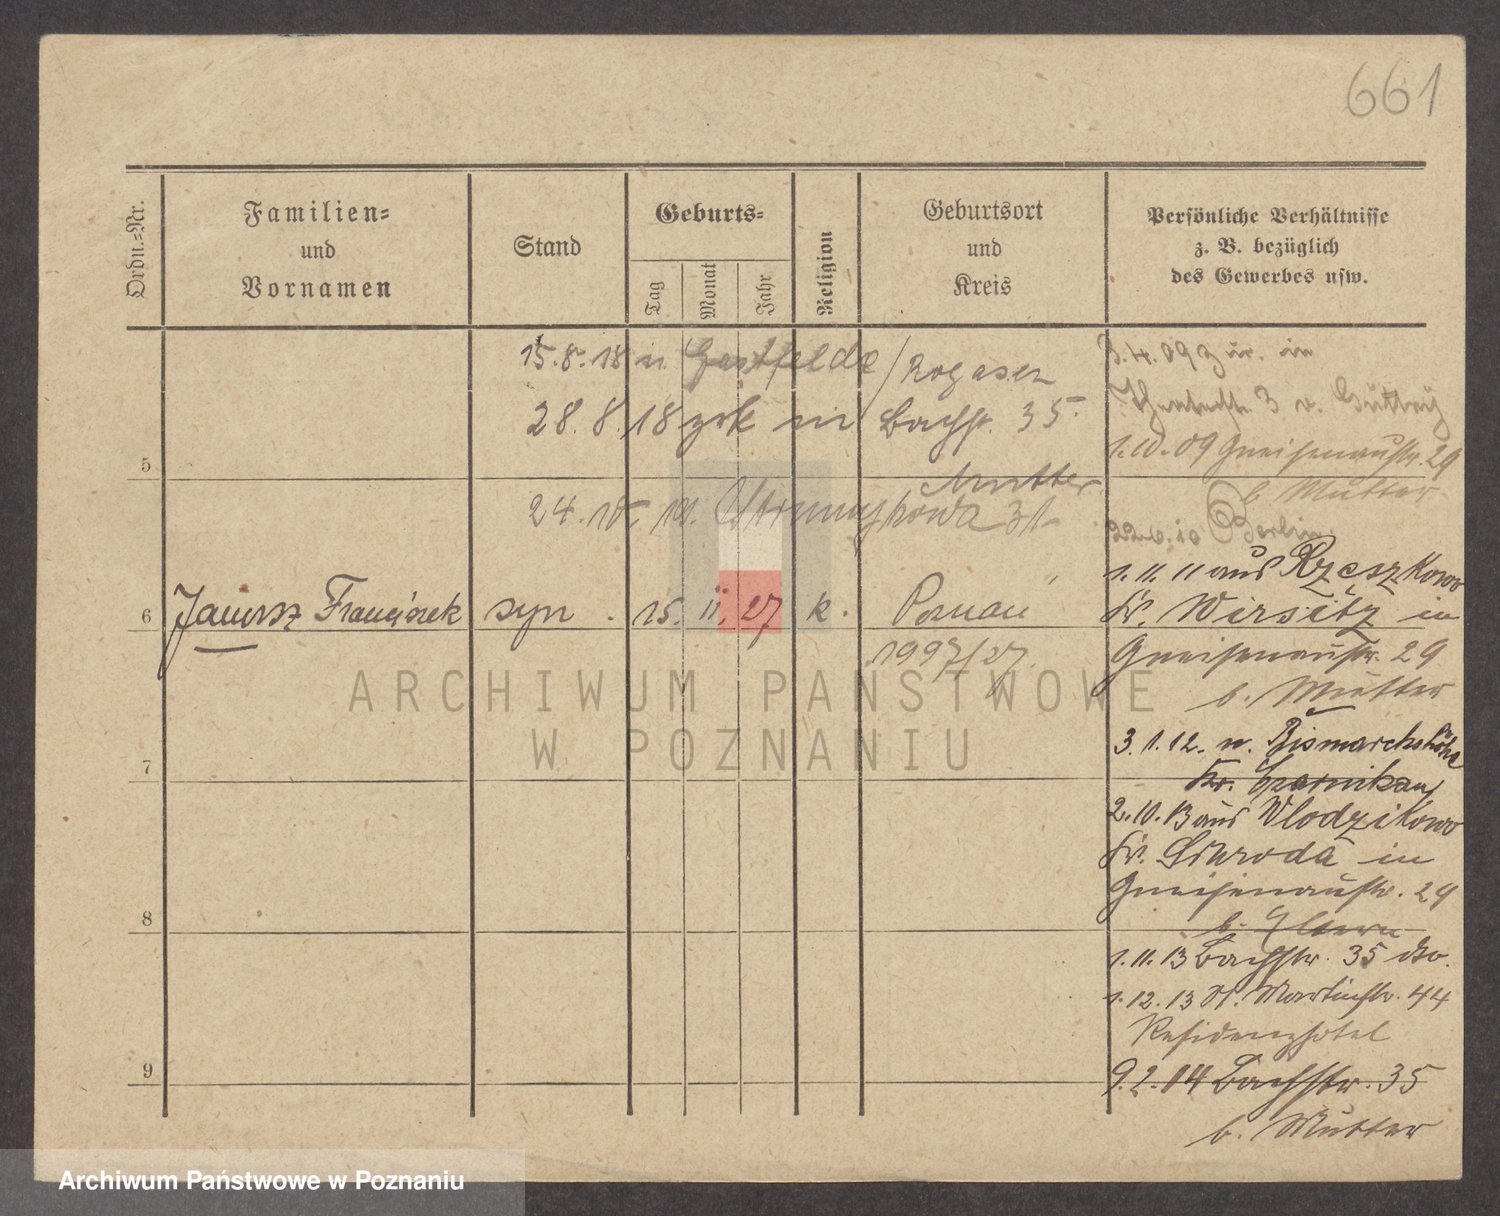 661
Ordn.=Nr.
Familien=
und
Vornamen
Stand
Geburts=
Tag
Monat
Jahr
Religion
Geburtsort
und
Kreis
Persönliche Verhältnisse
z. B. bezüglich
des Gewerbes usw.
15.8.18 n. / Rogasen
28.8.18 zrk in Bachstr. 35.
Mutter
24. 31
5
6 Janusz Franciszek syn. 15. II. 27 k. Poznań
1997/27.
7
8
9
3.4.09 zur. in
3 v.
1.10.09 Gneisenaustr. 29
b. Mutter
22.6.10 Berlin
1.11.11 aus Rzęszkowo
Kr. Wirsitz in
Gneisenaustr. 29
b. Mutter
3.1.12. n. Bismarckshöhe
Kr. Czarnikau
2.10.13 aus Wlodzikowo
Kr. Schroda in
Gneisenaustr. 29
b. Eltern
1.11.13 Bachstr. 35 dto.
1.12.13 St. Martinstr. 44
Residenzhotel
9.2.14 Bachstr. 35
b. Mutter
ARCHIWUM PAŃSTWOWE
W POZNANIU
Archiwum Państwowe w Poznaniu